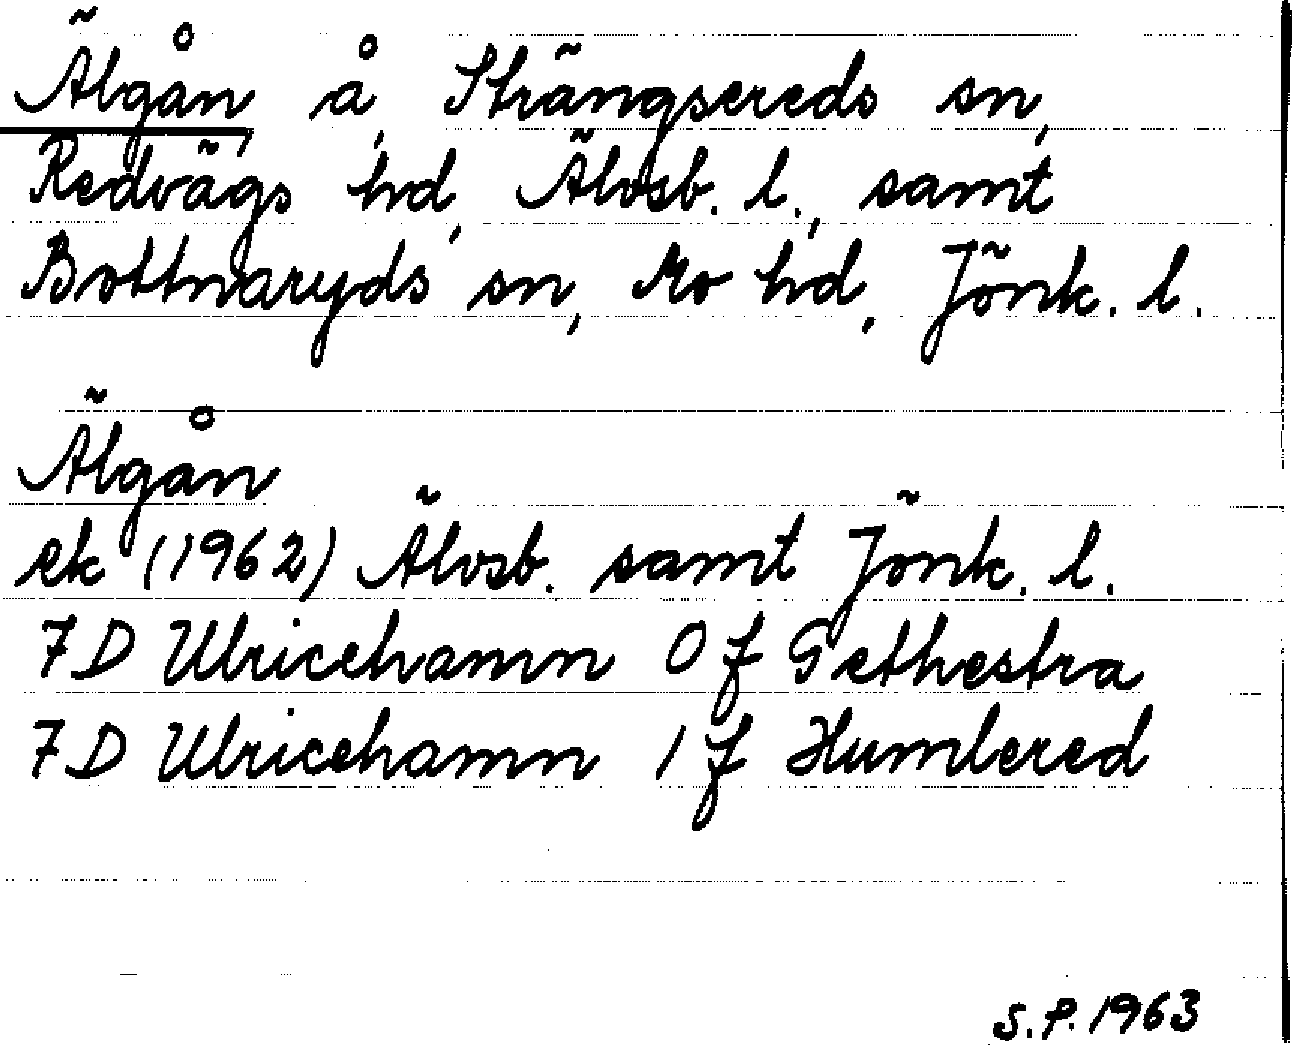 Älgån, å, Strängsereds sn,
Redvägs hd, Älvsb. l., samt
Bottnaryds sn, Mo hd, Jönk. l.
Älgån
ek (1962) Älvsb. samt Jönk. l.
7D Ulricehamn 0f Gethestra
7D Ulricehamn 1f Humlered
S.P. 1963